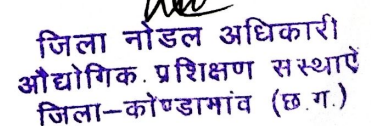 जिला नोडल अधिकारी
औद्योगिक. प्रशिक्षण सस्थाऐं
जिला-कोण्डामांव (छ.ग.)